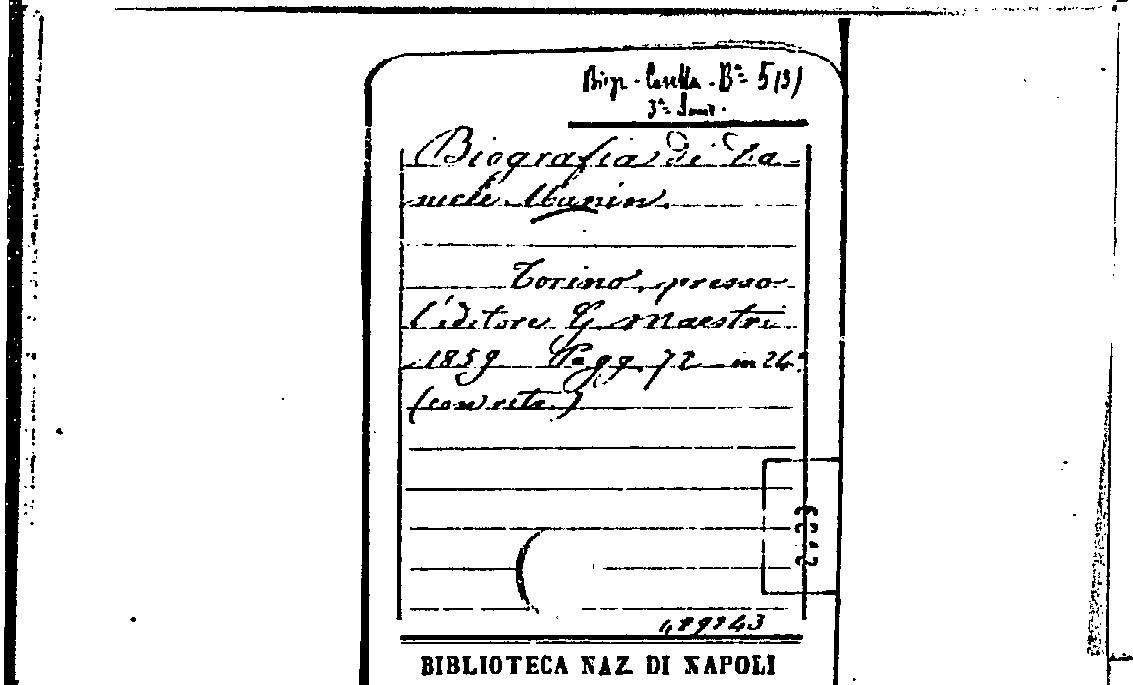 5(3)
Biografia di Da-
niele Manin.
Torino, presso
l'editore G. Maestri
1859 Pagg. 72 in 24°
(con ritr.)
489243
BIBLIOTECA NAZ. DI NAPOLI